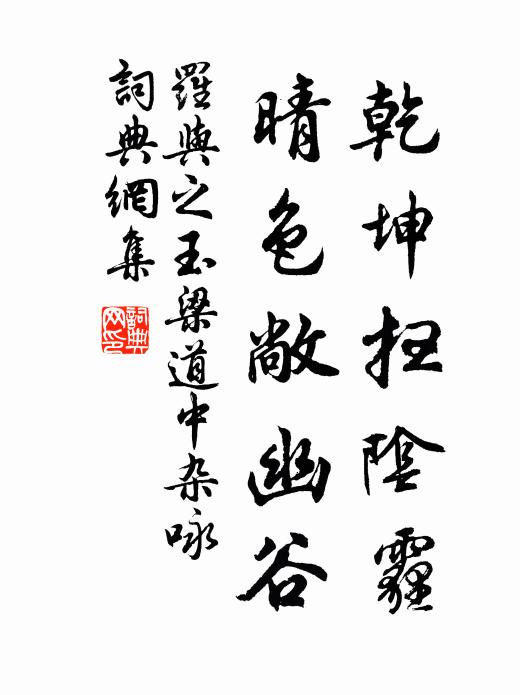 乾坤扫陰霾
晴色敞幽谷
羅與之玉梁道中杂咏
詞典網集
詞典网印